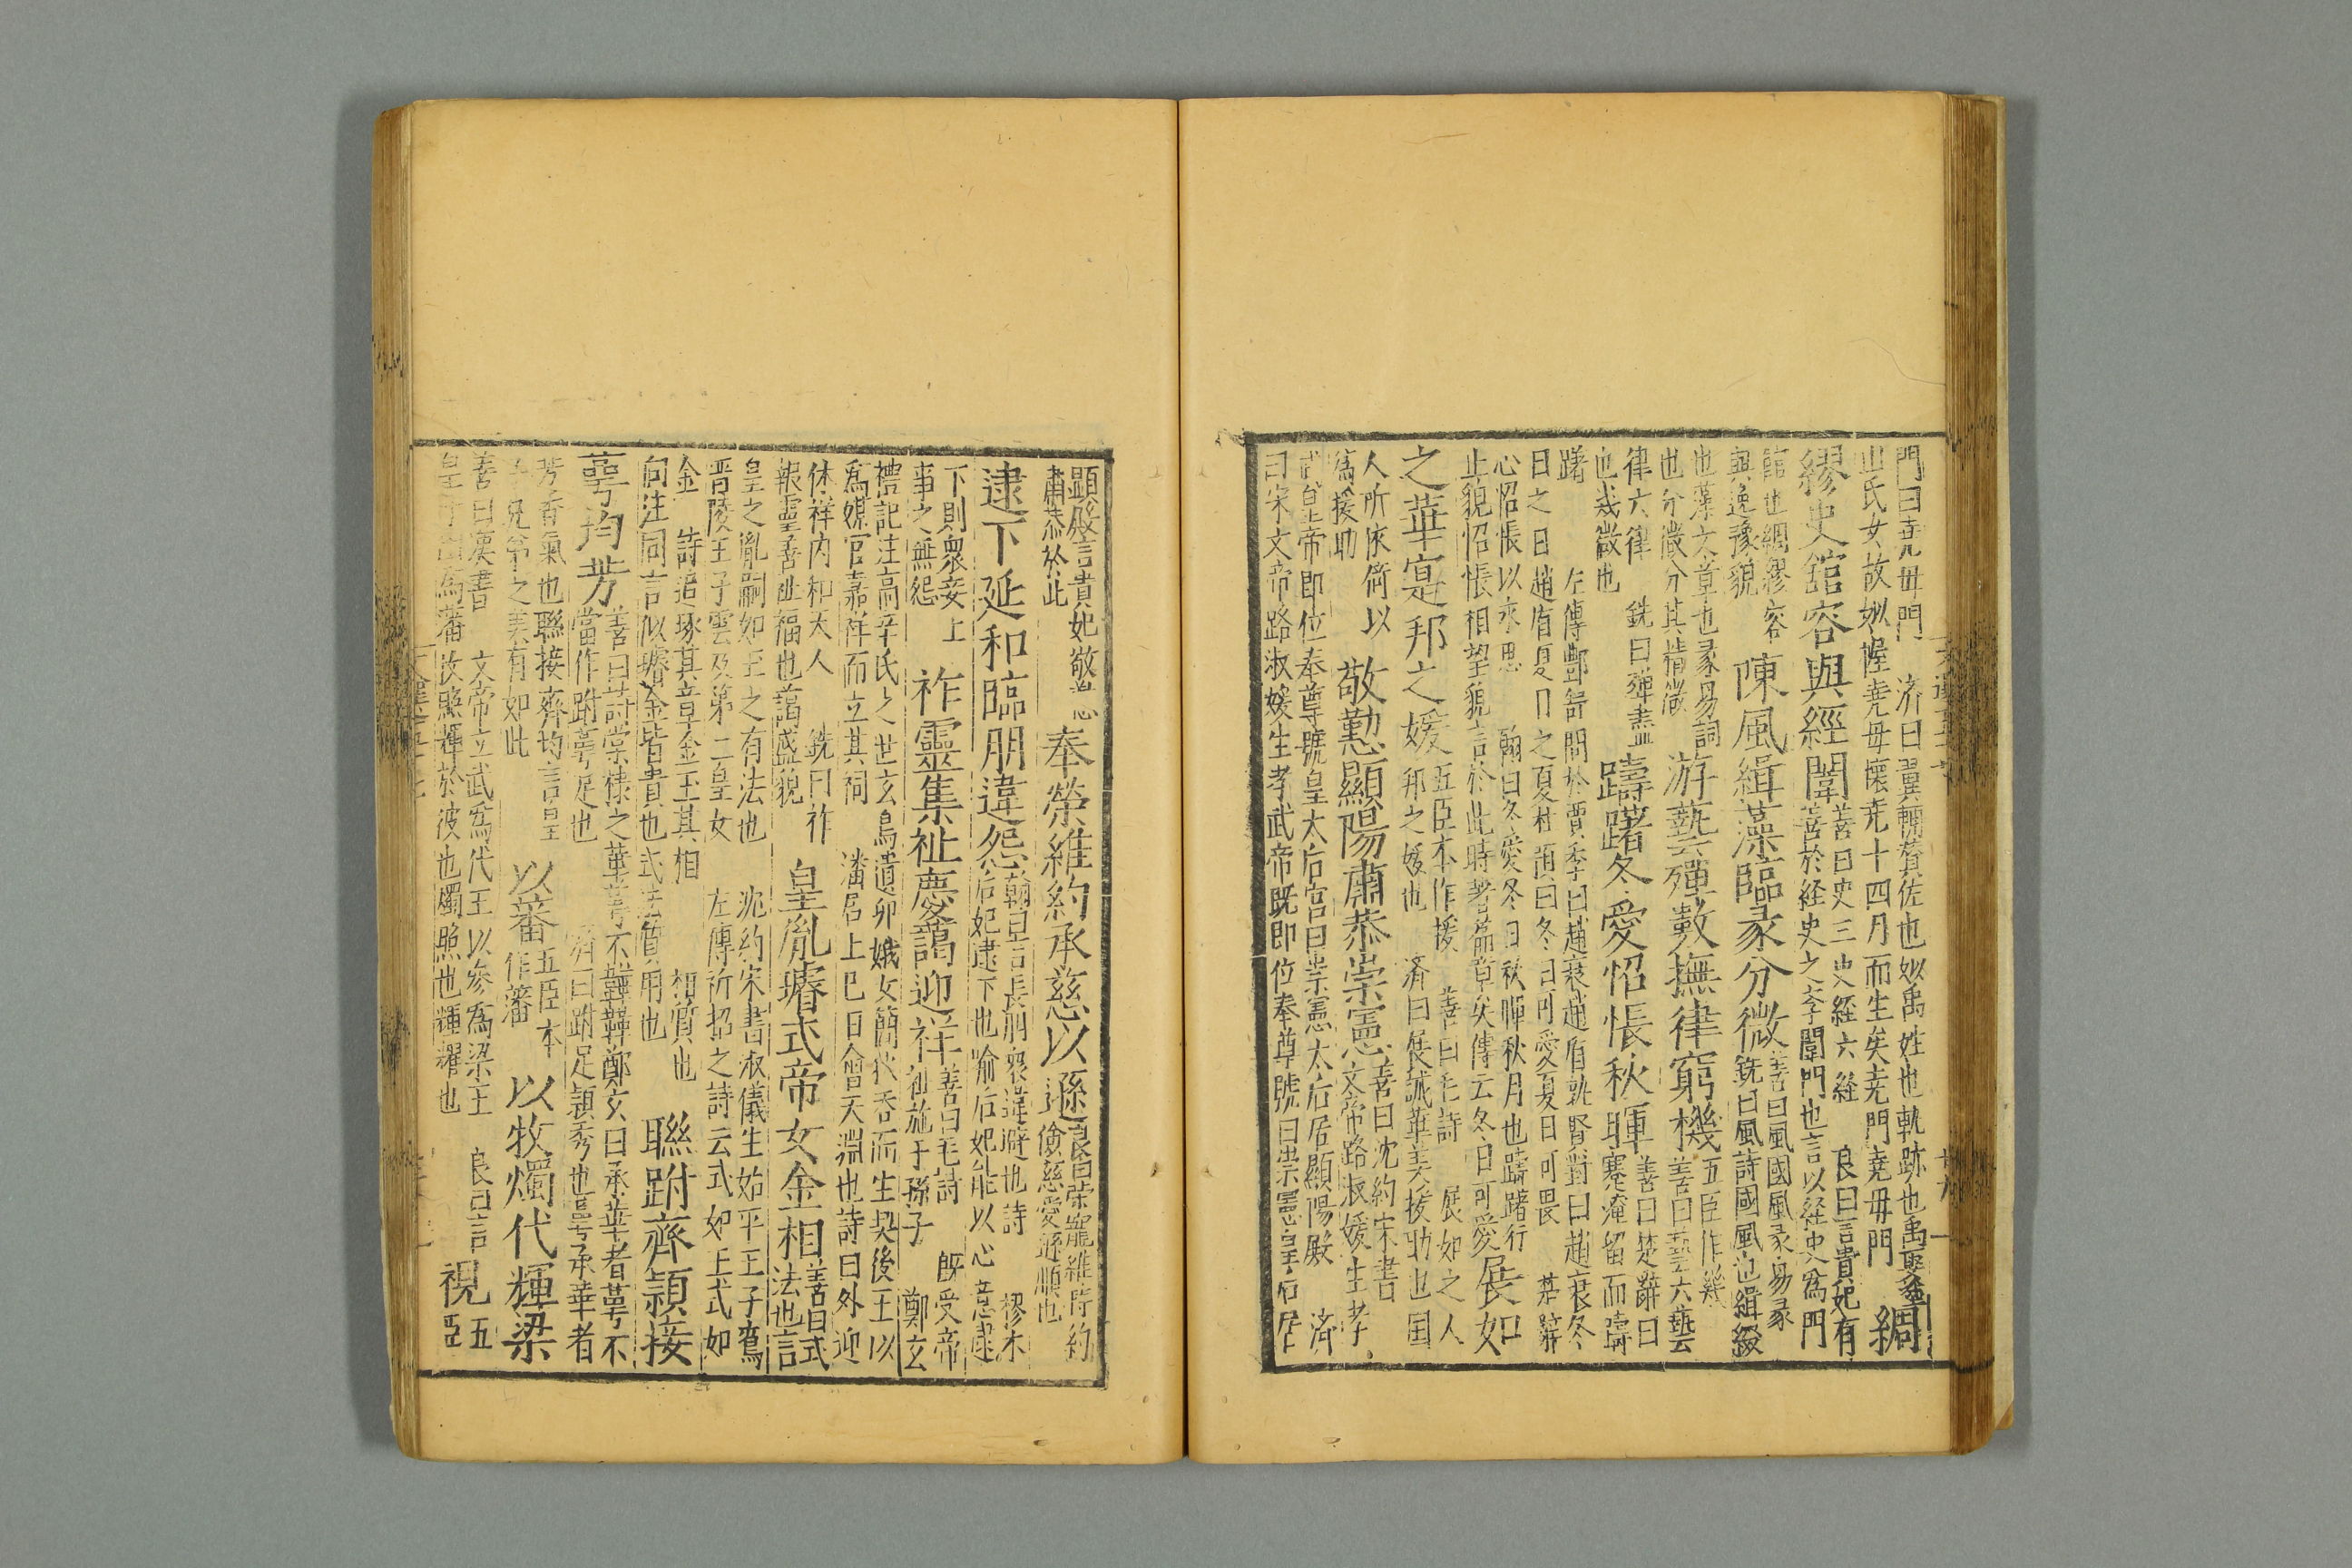 門曰堯母門　济曰翼輔賛佐也姒禹姓也軌跡也禹娶塗
山氏女故姒幄堯母懷堯十四月而生矣堯門堯母門　綢
繆史館容與經闈善曰史三史経六経　良曰言貴妃有
善於経史之李闈門也言以経史爲門
館也綢繆容
與逸豫貌　陳風緝藻臨彖分微善曰風國風彖易彖
銑曰風詩國風也緝綴
也藻文章也彖易詞
也分微分其精微　游藝殫數撫律窮機五臣作幾
善曰藝六藝云
律六律　銑曰殫盡
也幾微也　躊躇冬愛怊悵秋暉善曰楚辭曰
蹇淹留而躊
躇　左傳酆舒問於賈季曰趙衰趙盾孰賢對曰趙衰冬
日之日趙盾夏日之夏杜預曰冬日可愛夏日可畏　楚辭
心怊悵以永思　翰曰冬愛冬日秋暉秋月也躊躇行
止貌怊悵相望貌言於此時著篇章矣傳云冬日可愛　展如
之華寔邦之媛五臣本作援　善曰毛詩　展如之人
邦之媛也　济曰展誠華美援助也国
人所依倚以
爲援助　敬勤顯陽肅恭崇憲善曰沈約宋書
文帝路淑媛生孝
武皇帝即位奉尊號皇太后宮曰崇憲太后居顯陽殿　済
曰宋文帝路淑媛生孝武帝既即位奉尊號曰崇憲皇后居
顯殿言貴妃敬
肅恭於此　奉榮維約承慈以遜良曰榮寵維待約
儉慈愛遜順也
逮下延和臨朋違怨翰曰言長朋衆違避也詩　樛木
后妃逮下也喻后妃能以心意逮
下則衆妾上
事之無怨　祚靈集祉慶藹迎祥善曰毛詩　既受帝
祉施于孫子　鄭玄
禮記注高辛氏之世玄鳥遺卵娥女簡狄吞而生契後王以
爲媒官嘉祥而立其祠　潘居上巳日會天淵也詩曰外迎
休祥内和大人　銑曰祚
報靈善祉福也藹盛貌　皇胤璿式帝女金相善曰式
法也言
皇之胤嗣如玉之有法也　沈約宋書淑儀生始平王子鸞
晋陵王子雲及第二皇女　左傳祈招之詩云式如玉式如
金　詩追琢其章金玉其相　相質也
向注同言似璿金皆貴也式法質用也　聯跗齊穎接
萼均芳善曰詩棠棣之華萼不韡韡鄭玄曰承華者萼不
當作跗萼足也　濟曰跗足穎秀也萼承華者
芳香氣也聯接齊均言皇
子兄弟之美有如此　以蕃五臣本
作藩　以牧燭代輝梁
善曰漢書　文帝立武爲代王以參爲梁王　良曰言
皇子出爲蕃牧照輝於彼也燭照也輝耀也　視五
臣